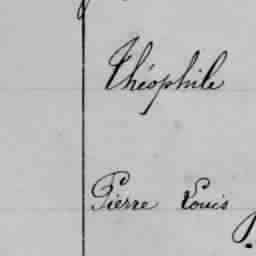 Théophile
Pierre Louis